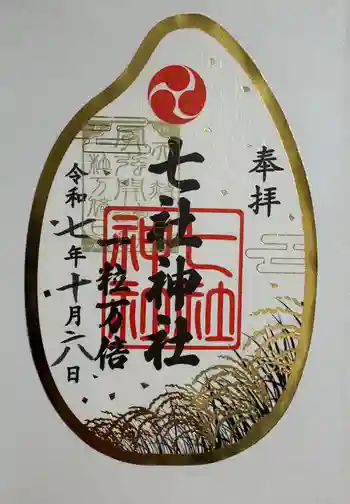 奉拝
七社神社
一粒万倍
令和七年十月六日
七社神社